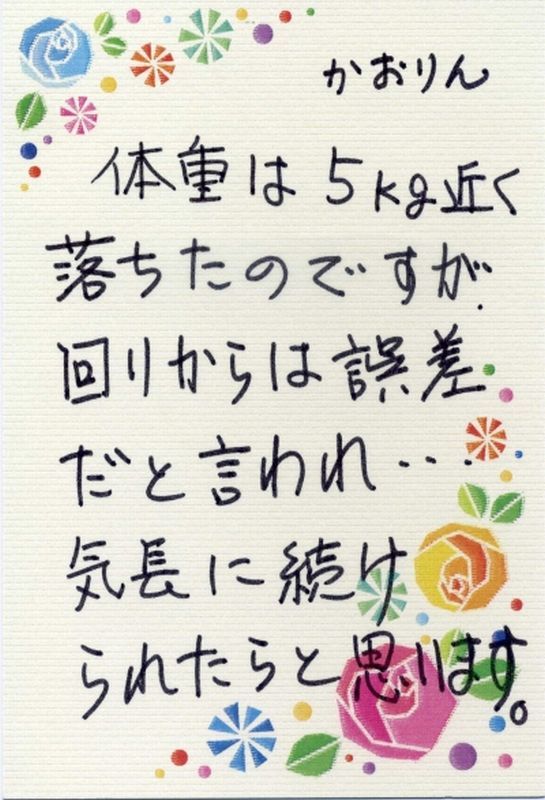 かおりん
体重は5kg近く
落ちたのですが、
回りからは誤差
だと言われ…
気長に続け
られたらと思います。